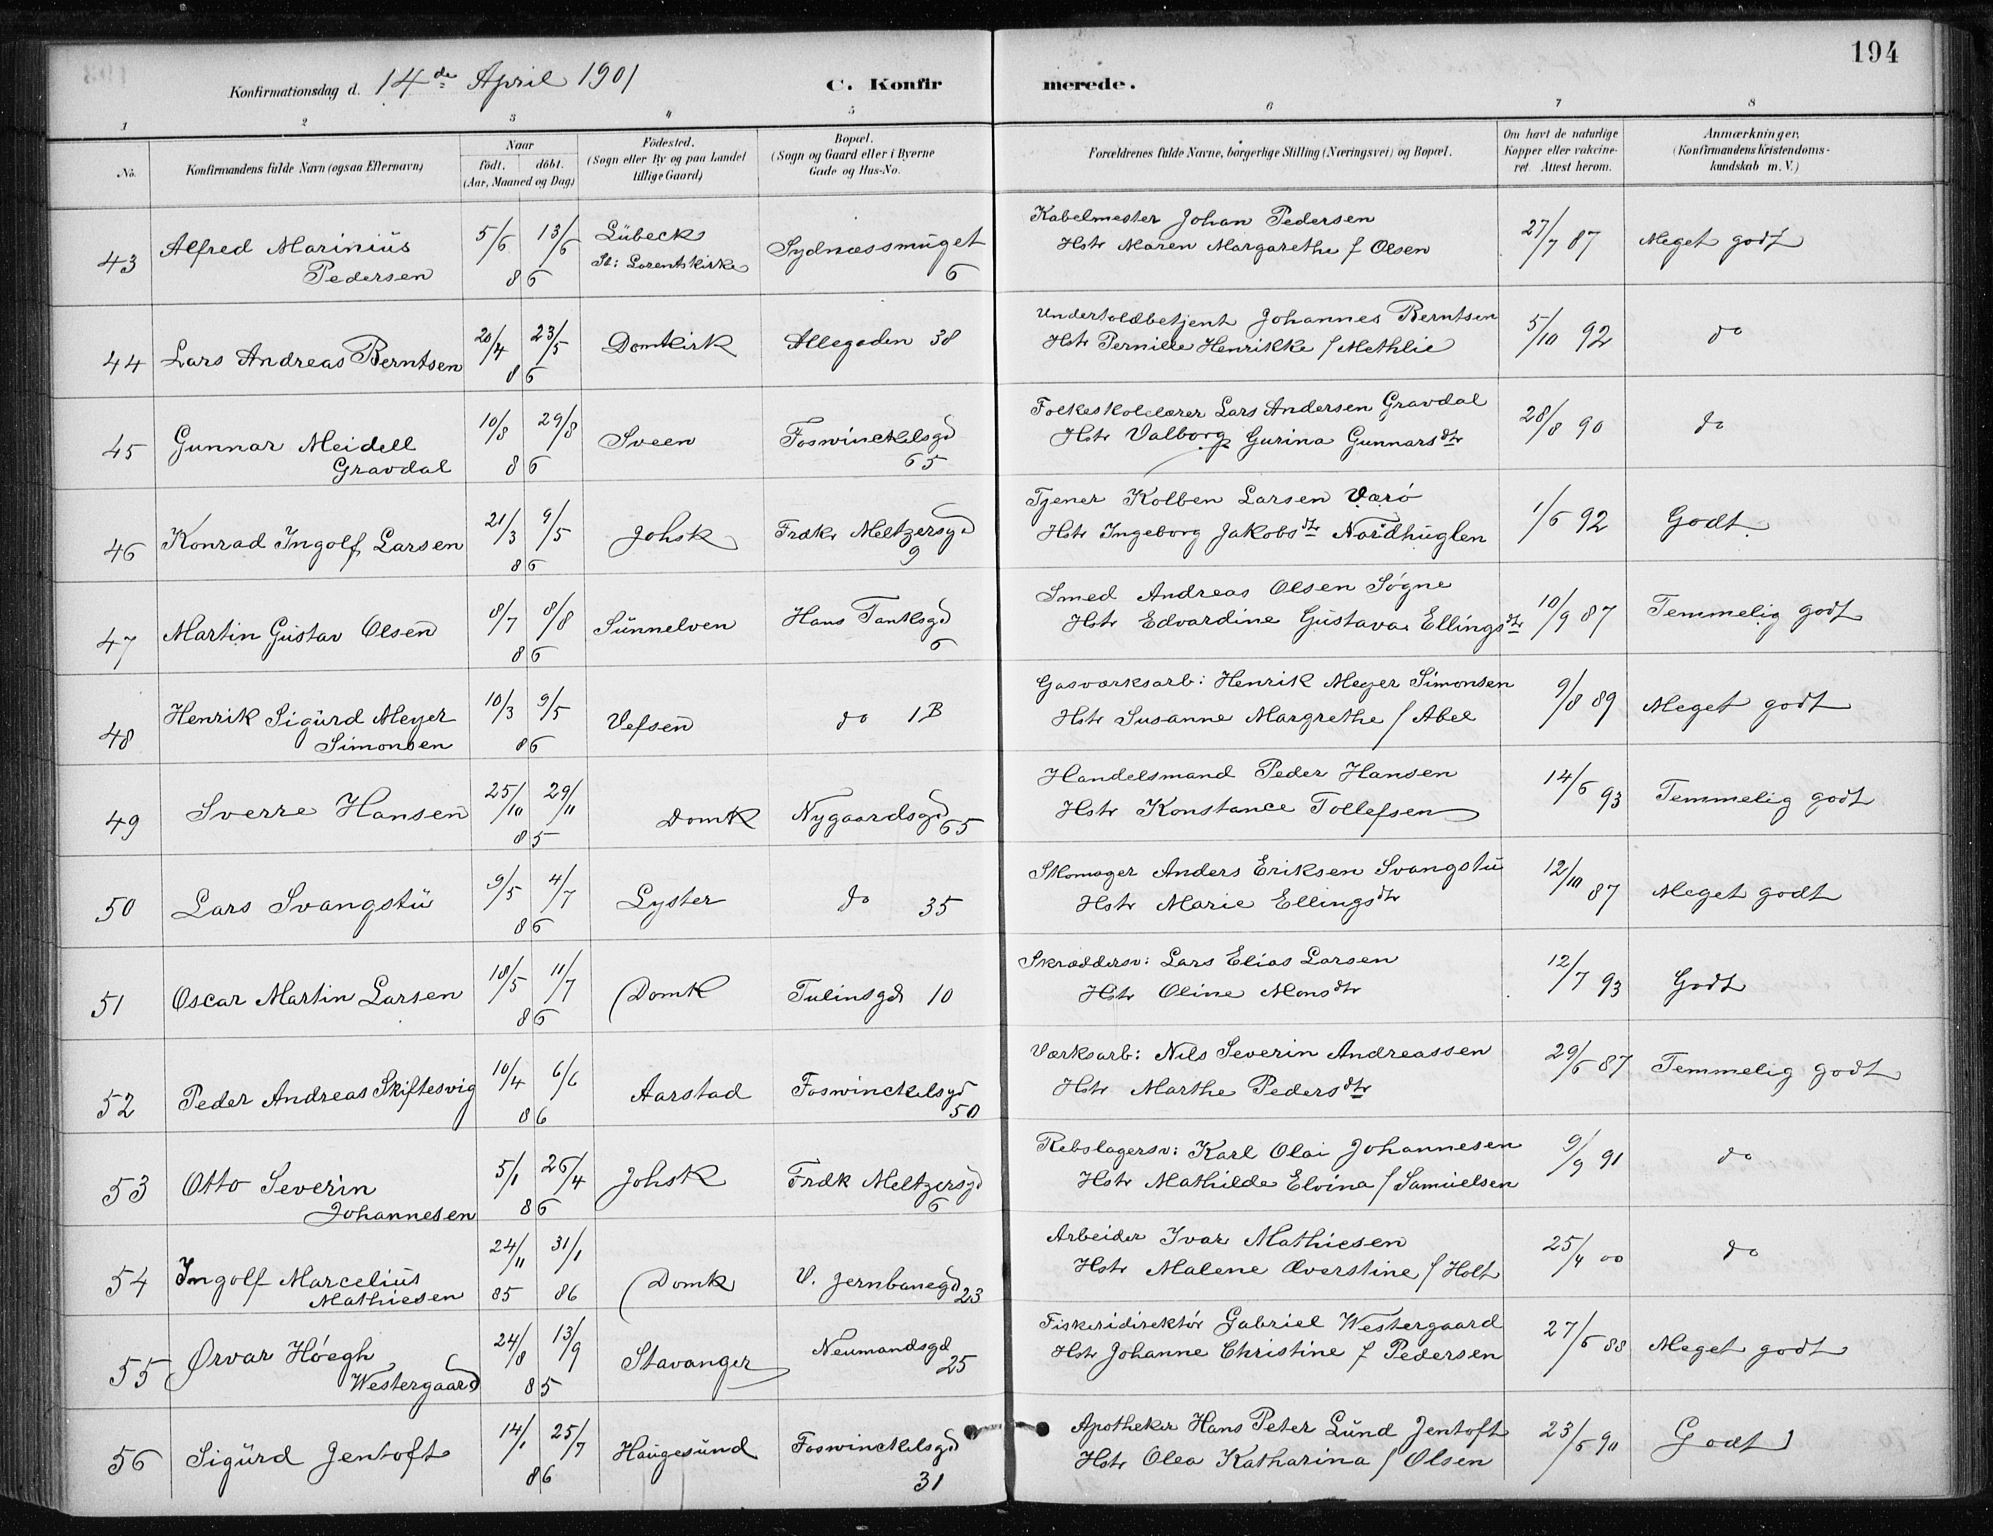 194
Konfirmationsdag d. 14de April 1901 C. Konfirmerede.
1 2 3 4 5 6 7 8
No. Konfirmandens fulde Navn (ogsaa Efternavn) Naar födt. döbt. (Aar, Maaned og Dag) Födested. (Sogn eller By og paa Landet tillige Gaard) Bopæl. (Sogn og Gaard eller i Byerne Gade og Hus-No. Forældrenes fulde Navne, borgerlige Stilling (Næringsvei) og Bopæl. Om havt de naturlige Kopper eller vakcineret. Attest herom. Anmærkninger. (Konfirmandens Kristendomskundskab m. V.)
43 Alfred Marinius Pedersen 5/6 13/6 86 Lübeck St: Lorentskirke Sydnæssmuget 6 Kabelmester Johan Pedersen
Hstr Maren Margarethe f Olsen 27/7 87 Meget godt
44 Lars Andreas Berntsen 20/4 23/5 86 Domkirk Allegaden 38 Undertoldbetjent Johannes Berntsen
Hstr Pernille Henrikke f Methlie 5/10 92 do
45 Gunnar Meidell Gravdal 10/8 29/8 86 Sveen Foswinckelsgd 65 Folkeskolelærer Lars Andersen Gravdal
Hstr Valborg Gurina Gunnarsdtr 28/8 90 do
46 Konrad Ingolf Larsen 21/3 9/5 86 Johsk Fredkr Meltzersgd 9 Tjener Kolben Larsen Værö
Hstr Ingeborg Jakobsdtr Nordhuglen 1/6 92 Godt
47 Martin Gustav Olsen 8/7 8/8 86 Sunnelven Hans Tanksgd 6 Smed Andreas Olsen Søgne
Hstr Edvardine Gustava Ellingsdtr 10/9 87 Temmelig godt
48 Henrik Sigurd Meyer Simonsen 10/3 9/5 86 Vefsen do 1B Gasværksarb: Henrik Meyer Simonsen
Hstr Susanne Margrethe f Abel 9/8 89 Meget godt
49 Sverre Hansen 25/10 29/11 85 Domk Nygaardsgd 65 Handelsmand Peder Hansen
Hstr Konstance Tollefsen 14/6 93 Temmelig godt
50 Lars Svangstu 9/5 4/7 86 Lyster do 35 Skomager Anders Eriksen Svangstu
Hstr Marie Ellingsdtr 12/10 87 Meget godt
51 Oscar Martin Larsen 18/5 11/7 86 Domk Tulinsgd 10 Skræddersv: Lars Elias Larsen
Hstr Oline Monsdtr 12/7 93 Godt
52 Peder Andreas Skiftesvig 10/4 6/6 86 Aarstad Foswinckelsgd 50 Værksarb: Nils Severin Andreassen
Hstr Marthe Pedersdtr 29/6 87 Temmelig godt
53 Otto Severin Johannesen 5/1 26/4 86 Johsk Fredk Meltzersgd 6 Rebslagersv: Karl Olai Johannesen
Hstr Mathilde Elvina f Samuelsen 9/9 91 do
54 Ingolf Marcelius Mathiesen 24/11 85 31/1 86 Domk V. Jernbanegd 23 Arbeider Ivar Mathiesen
Hstr Malene Æverstine f Holt 25/4 00 do
55 Ørvar Høegh Westergaard 24/8 13/9 85 Stavanger Neumandsgd 25 Fiskeridirektør Gabriel Westergaard
Hstr Johanne Christine f Pedersen 27/6 88 Meget godt
56 Sigurd Jentoft 14/1 25/7 86 Haugesund Foswinckelsgd 31 Apotheker Hans Peter Lund Jentoft
Hstr Olea Katharina f Olsen 23/6 90 Godt